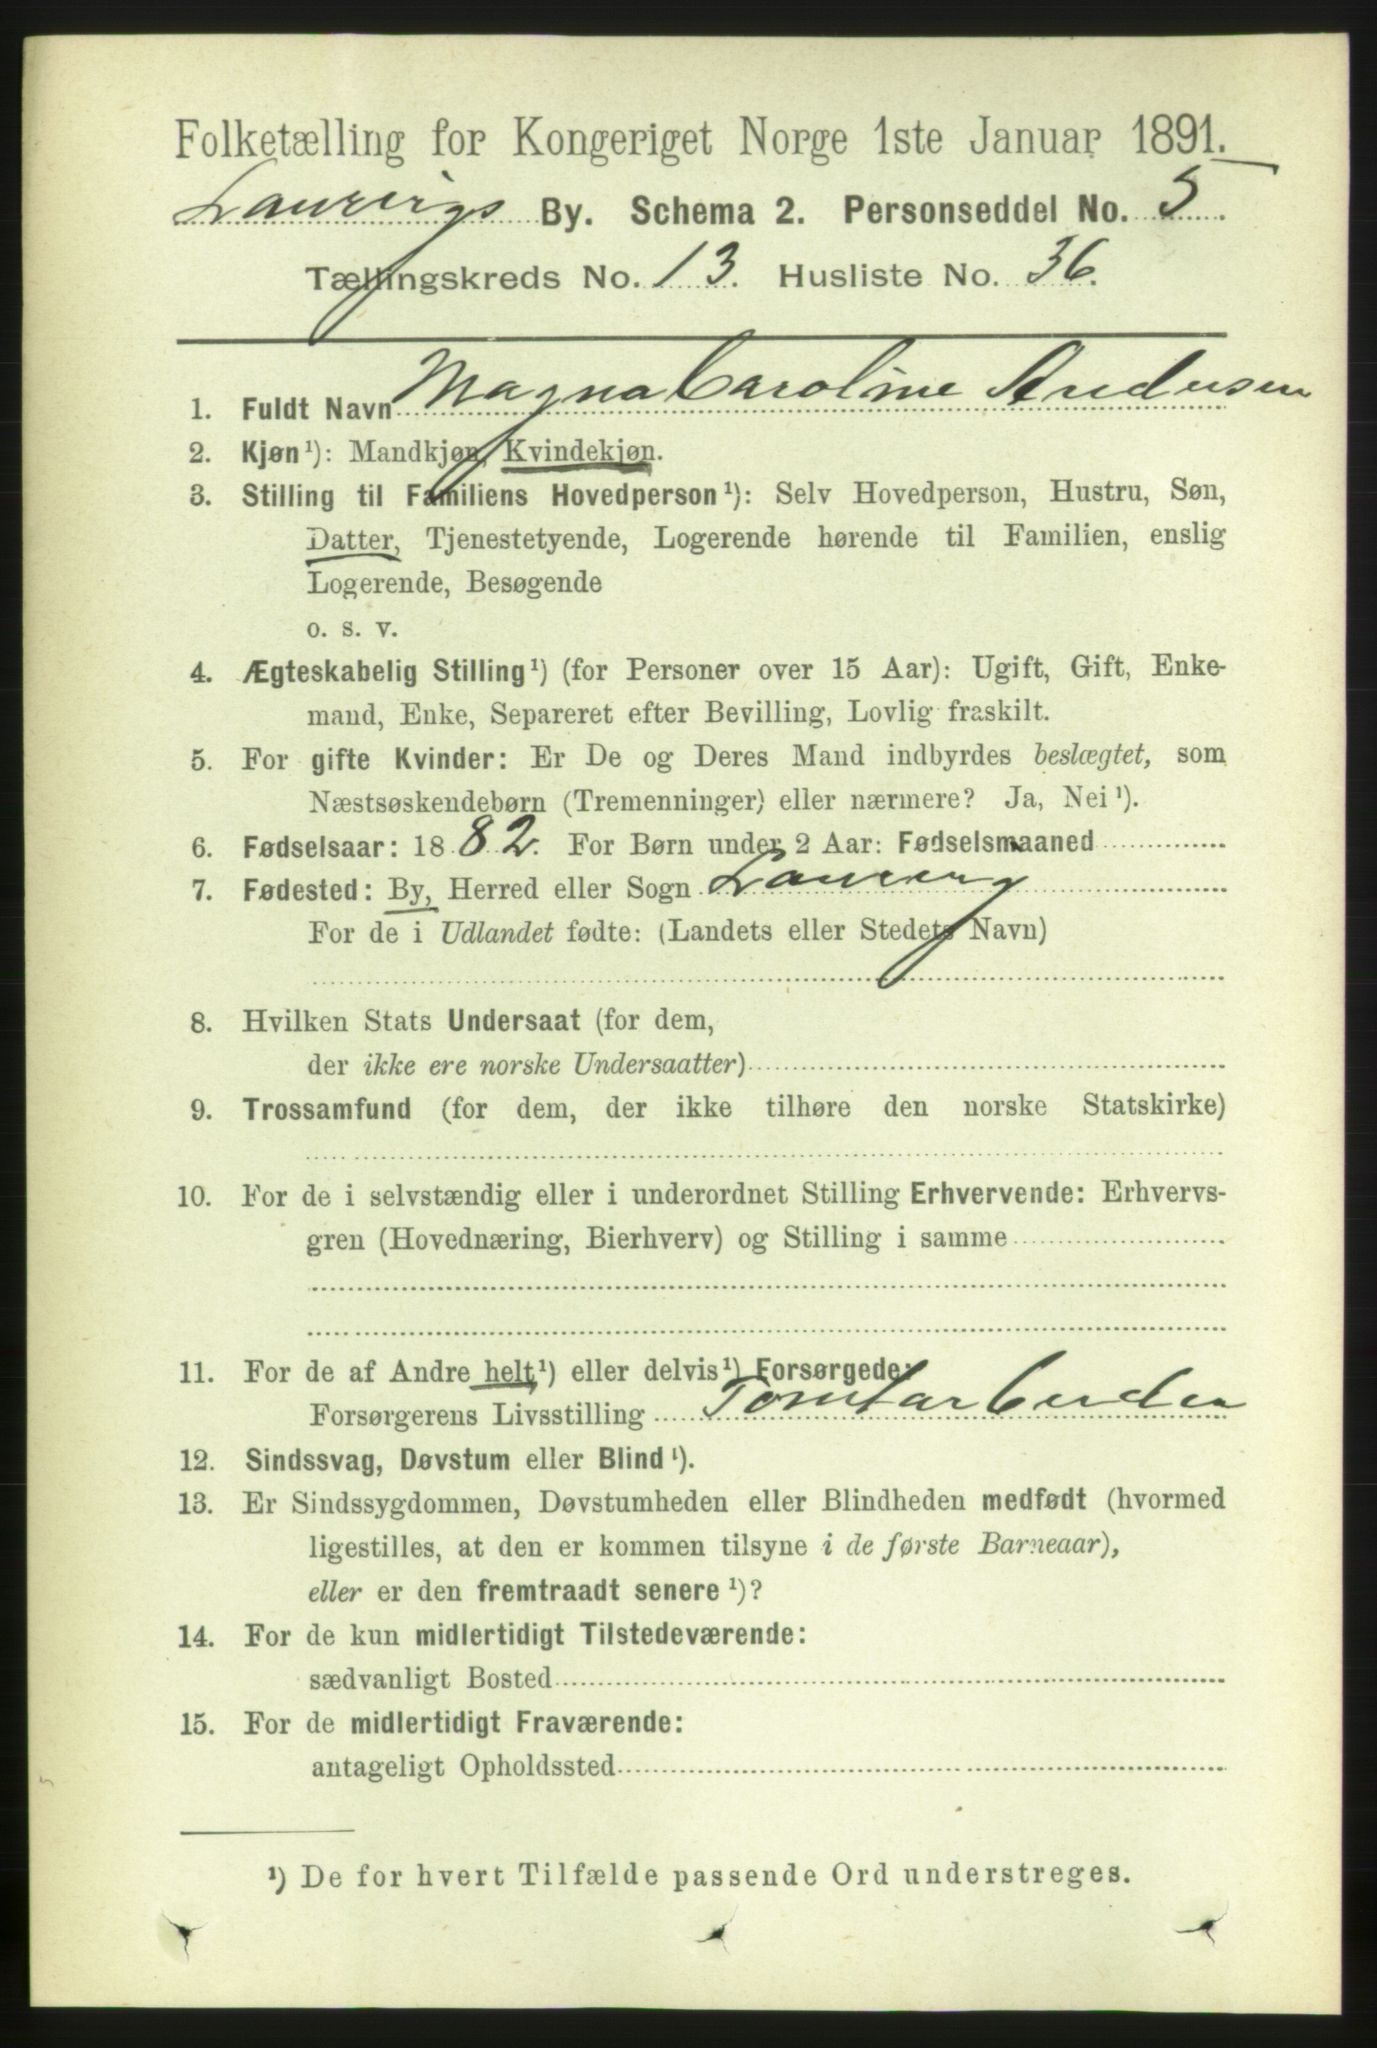 Folketælling for Kongeriget Norge 1ste Januar 1891.
Laurvigs By. Schema 2. Personseddel No. 5.
Tællingskreds No. 13. Husliste No. 36.
1. Fuldt Navn Magna Caroline Andersen
2. Kjøn¹): Mandkjøn, Kvindekjøn.
3. Stilling til Familiens Hovedperson¹): Selv Hovedperson, Hustru, Søn,
Datter, Tjenestetyende, Logerende hørende til Familien, enslig
Logerende, Besøgende
o. s. v.
4. Ægteskabelig Stilling¹) (for Personer over 15 Aar): Ugift, Gift, Enke-
mand, Enke, Separeret efter Bevilling, Lovlig fraskilt.
5. For gifte Kvinder: Er De og Deres Mand indbyrdes beslægtet, som
Næstsøskendebørn (Tremenninger) eller nærmere? Ja, Nei¹).
6. Fødselsaar: 1882. For Børn under 2 Aar: Fødselsmaaned
7. Fødested: By, Herred eller Sogn Laurvig
For de i Udlandet fødte: (Landets eller Stedets Navn)
8. Hvilken Stats Undersaat (for dem,
der ikke ere norske Undersaatter)
9. Trossamfund (for dem, der ikke tilhøre den norske Statskirke)
10. For de i selvstændig eller i underordnet Stilling Erhvervende: Erhvervs-
gren (Hovednæring, Bierhverv) og Stilling i samme
11. For de af Andre helt¹) eller delvis¹) Forsørgede:
Forsørgerens Livsstilling Tomtarbeider
12. Sindssvag, Døvstum eller Blind¹).
13. Er Sindssygdommen, Døvstumheden eller Blindheden medfødt (hvormed
ligestilles, at den er kommen tilsyne i de første Barneaar),
eller er den fremtraadt senere¹)?
14. For de kun midlertidigt Tilstedeværende:
sædvanligt Bosted
15. For de midlertidigt Fraværende:
antageligt Opholdssted
¹) De for hvert Tilfælde passende Ord understreges.